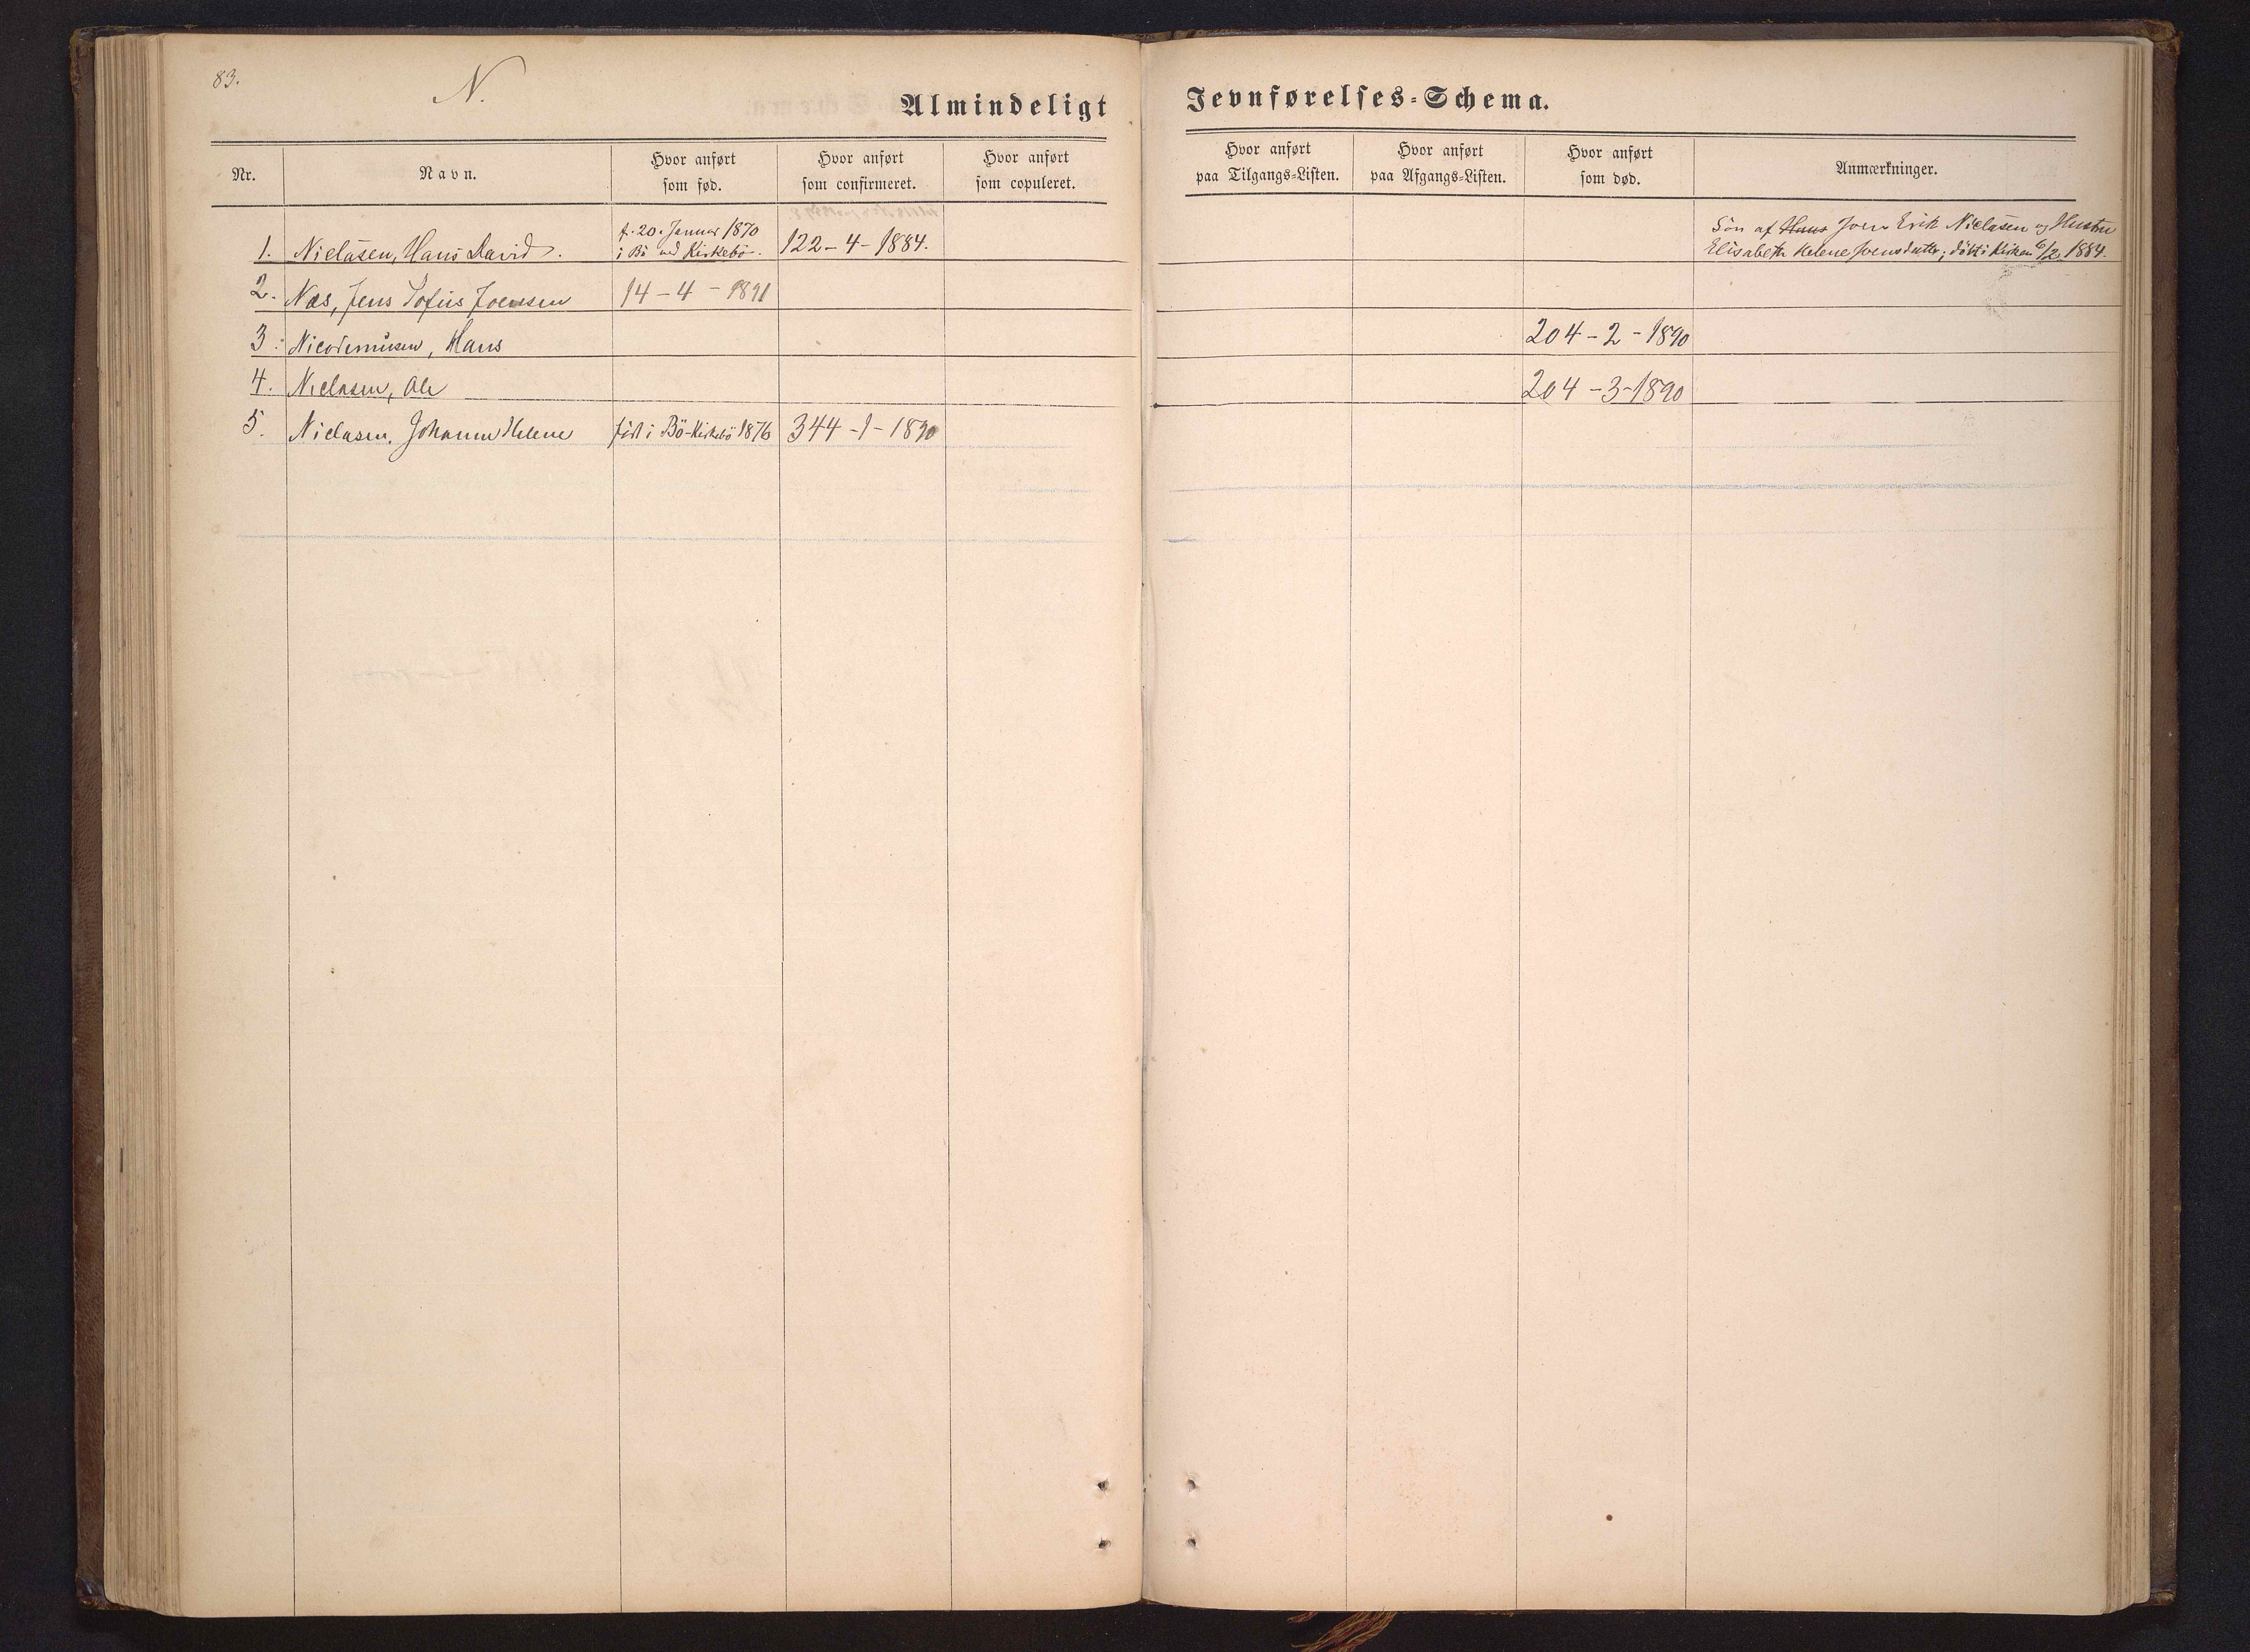 83.
N.
Almindeligt Jevnførelses-Schema.
Nr. Navn. Hvor anført som fød. Hvor anført som confirmeret. Hvor anført som copuleret. Hvor anført paa Tilgangs-Listen. Hvor anført paa Afgangs-Listen. Hvor anført som død. Anmærkninger.
1. Niclasen, Hans David. f. 20. Januar 1870 i Bö ved Kirkebö. 122-4-1884. Sön af Hans Joen Erik Niclasen og Hustru Elisabeth Helene Joensdatter; döbt i Kirken 6/2 1884.
2. Næs, Jens Sofus Joensen 14-4-1891
3. Nicodemusen, Hans 204-2-1890
4. Niclasen, Ole 204-3-1890
5. Niclasen, Johanne Helene født i Bö-Kirkebö 1876 344-1-1890